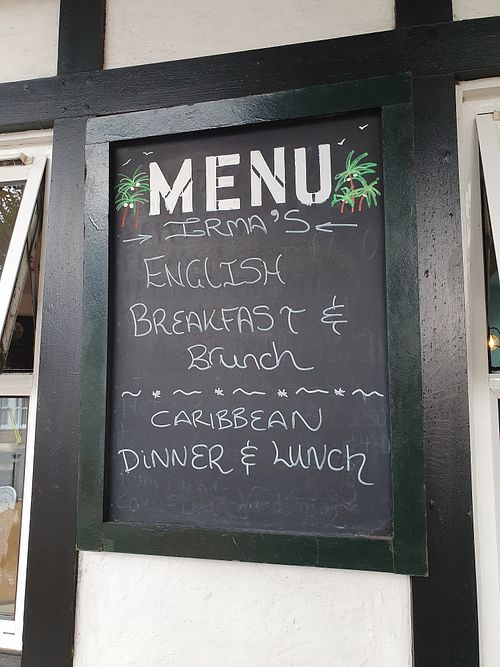 MENU
IRMA'S
ENGLISH
BREAKFAST &
Brunch
CARIBBEAN
DINNER & LUNCH